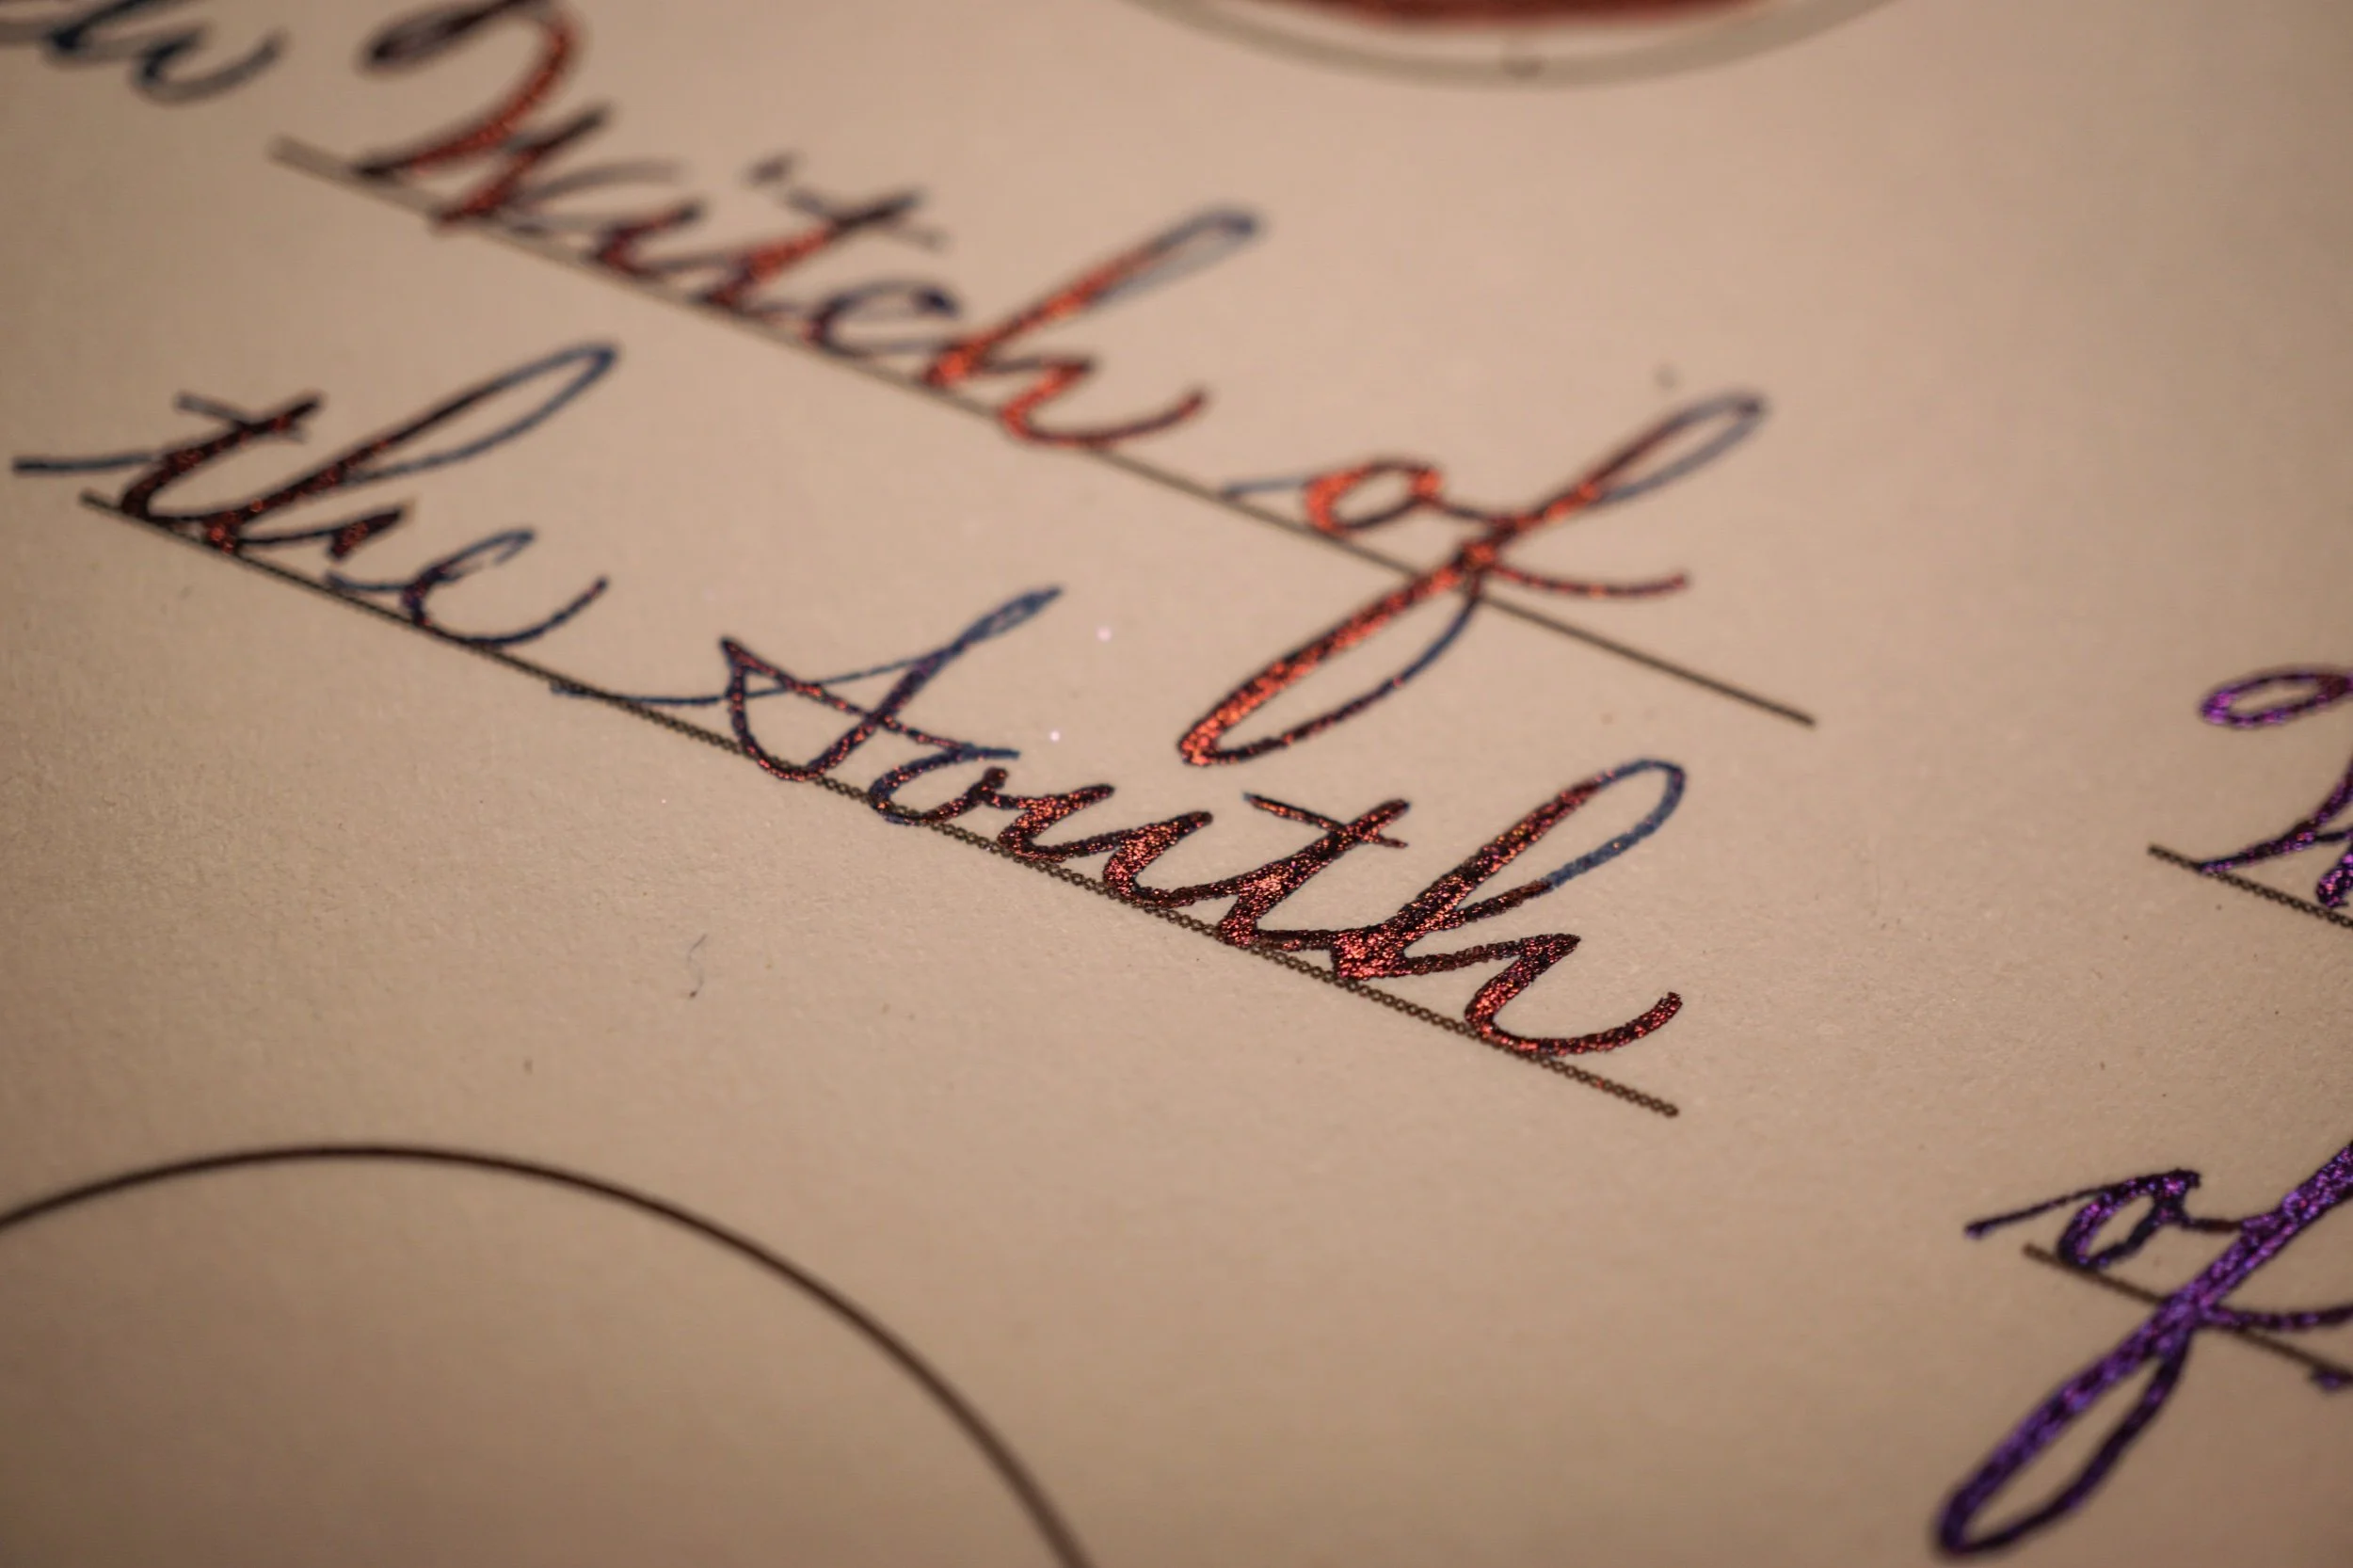 Witch of
the South
of